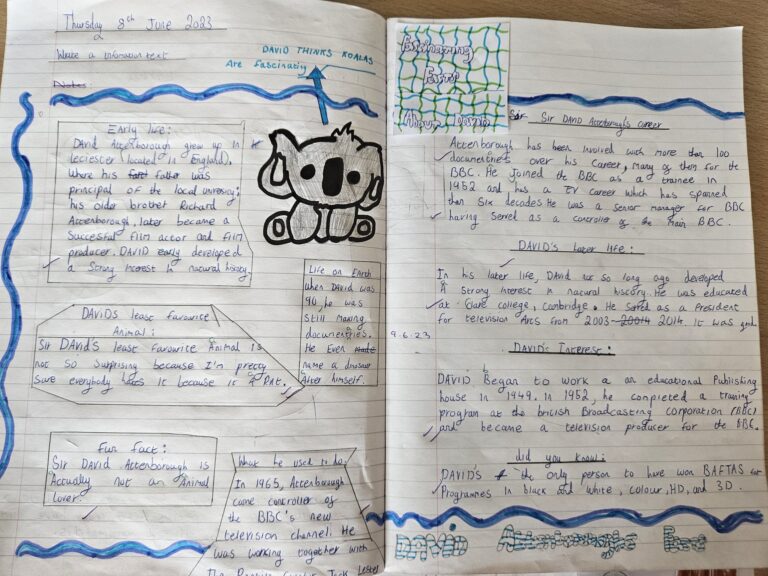 Thursday 8th June 2023
Write a information text
Notes:
DAVID THINKS KOALAS
Are fascinatig
Early life:
David Attenborough grew up in
Leciester (located in England),
Where his fath father was
principal of the local unversity;
his older brother Richard
Attenborough, later became a
Succesful film actor and film
producer. DAVID early developed
a Strong interest in natural history.
DAVIDS least favourite
Animal:
Sir DAVID'S least favourite Animal is
not so Surprising because I'm pretty
Sure everybody hates it because it A RAt.
Fun fact:
Sir DAVID Attenborough is
Actually not an Animal
Lover.
Life on Earth
when DAVID was
90, he was
still making
documentries.
He Even made
name a dinosaur
After himself.
What he used to do:
In 1965, Attenborough
came controller of
the BBC's new
television channel. He
was working together with
Sir DAVID Attenborough's career
Attenborough has been involved with more than 100
documentries over his Career, Many of them for the
BBC. He joined the BBC as a trainee in
1952 and has a TV Career which has spanned
than Six decades. He was a senior manager for BBC
having served as a controller of the main BBC.
DAVID'S later life:
In his later life, David so long ago developed
A strong interest in natural history. He was educated
at Clare college, Cambridge. He Served as a President
for television Arts from 2003-20014 2014. It was
9.6.23
DAVID'S Interest:
DAVID Began to work a an educational Publishing
house in 1949. In 1952, he completed a training
program at the british Broadcasting corporation (BBC)
and became a television producer for the BBC.
did you know:
DAVID'S the only person to have won BAFTAS for
Programmes in black and white, colour, HD, and 3D.
DAVID Attenborough's